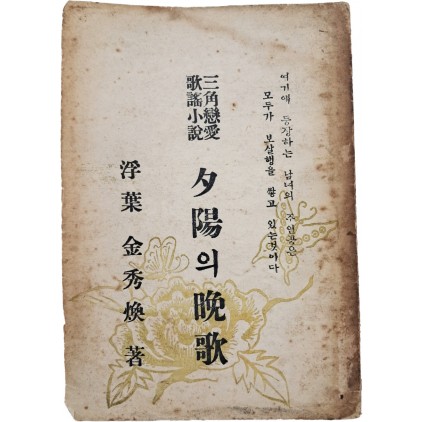 여기에 등장하는 남녀의 주인공은
모두가 보살행을 쌓고 있는것이다
三角戀愛
歌謠小說
夕陽의 晩歌
浮葉 金秀煥 著